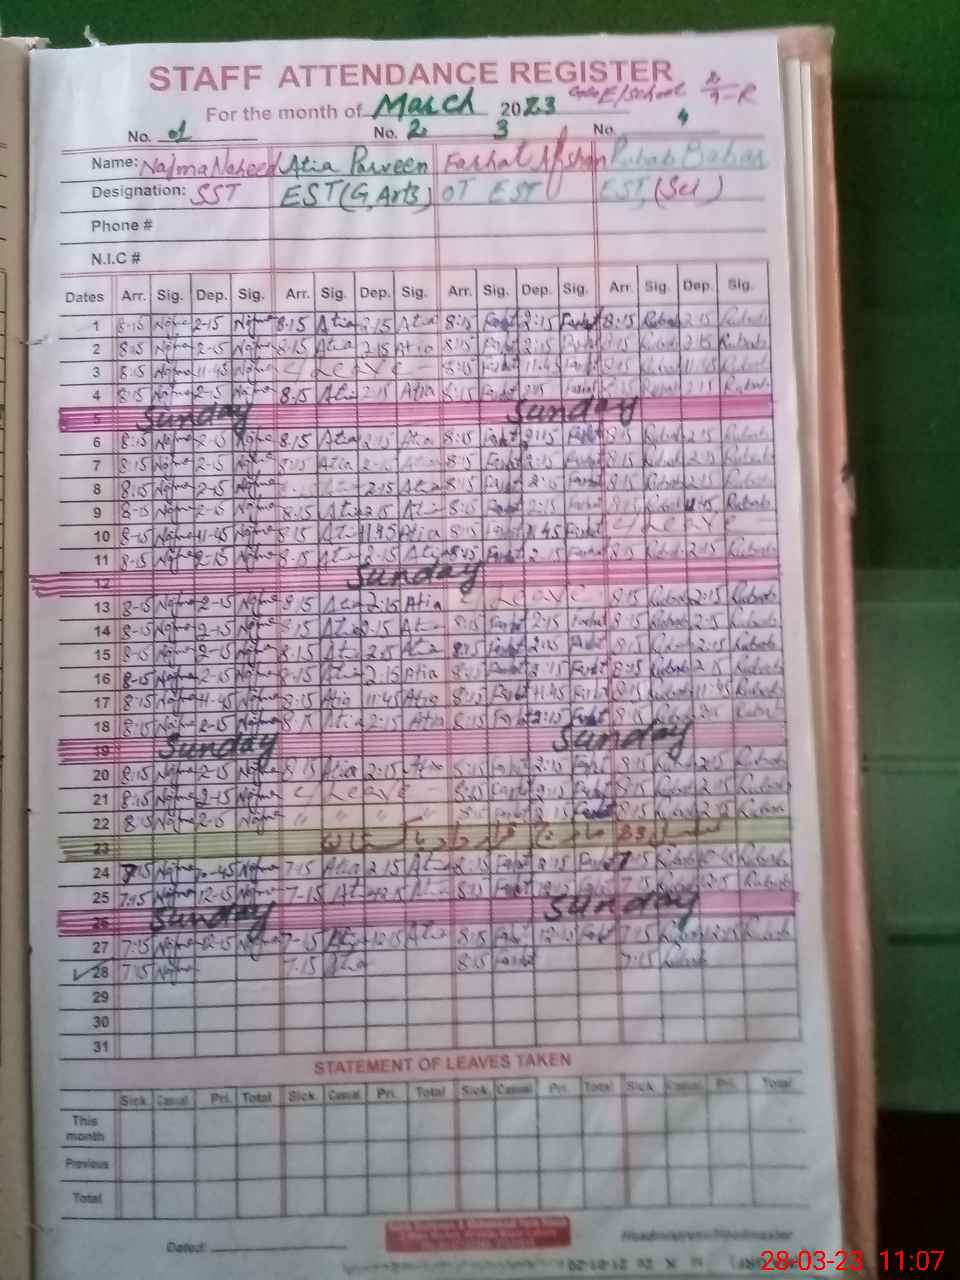 STAFF ATTENDANCE REGISTER
E/School
For the month of March 2023
No. 01 No. 2 3 No. 4
Name: Najma Naheed Atia Parveen Farhat Afshan Rubab Babar
Designation: SST EST (G, Arts) OT EST EST, (Sci)
Phone #
N.I.C #
Dates Arr. Sig. Dep. Sig. Arr. Sig. Dep. Sig. Arr. Sig. Dep. Sig. Arr. Sig. Dep. Sig.
1 8-15 Najma 2-15 Najma 8.15 Atia 2.15 Atia 8:15 Farhat 2:15 Farhat 8:15 Rubab 2:15 Rubab
2 8:15 Najma 2-15 Najma 8.15 Atia 2.15 Atia 8:15 Farhat 2:15 Farhat 8:15 Rubab 2:15 Rubab
3 8:15 Najma 11-45 Najma C/Leave - 8:15 Farhat 11:45 Farhat 8:15 Rubab 11:45 Rubab
4 8:15 Najma 2-15 Najma 8.15 Atia 2.15 Atia 8:15 Farhat 2:15 Farhat 8:15 Rubab 2:15 Rubab
5 Sunday Sunday
6 8:15 Najma 2-15 Najma 8.15 Atia 2:15 Atia 8:15 Farhat 2:15 Farhat 8:15 Rubab 2:15 Rubab
7 8:15 Najma 2-15 Najma 8:15 Atia 2-15 Atia 8:15 Farhat 2:15 Farhat 8:15 Rubab 2:15 Rubab
8 8:15 Najma 2-15 Najma 2.15 Atia 8:15 Farhat 2:15 Farhat 8:15 Rubab 2:15 Rubab
9 8-15 Najma 2-15 Najma 8.15 Atia 2.15 Atia 8:15 Farhat 2:15 Farhat 8:15 Rubab 11:45 Rubab
10 8-15 Najma 11-45 Najma 8.15 Atia 11.45 Atia 8:15 Farhat 11.45 Farhat C/Leave -
11 8-15 Najma 2-15 Najma 8.15 Atia 2-15 Atia 8:15 Farhat 2:15 Farhat 8:15 Rubab 2:15 Rubab
12 Sunday
13 8-15 Najma 2-15 Najma 8.15 Atia 2:15 Atia C/Leave - 8:15 Rubab 2:15 Rubab
14 8-15 Najma 2-15 Najma 8.15 Atia 2.15 Atia 8:15 Farhat 2:15 Farhat 8:15 Rubab 2:15 Rubab
15 8-15 Najma 2-15 Najma 8.15 Atia 2.15 Atia 8:15 Farhat 2:15 Farhat 8:15 Rubab 2:15 Rubab
16 8-15 Najma 2-15 Najma 8.15 Atia 2.15 Atia 8:15 Farhat 2:15 Farhat 8:15 Rubab 2:15 Rubab
17 8:15 Najma 11-45 Najma 8:15 Atia 11:45 Atia 8:15 Farhat 11:45 Farhat 8:15 Rubab 11:45 Rubab
18 8:15 Najma 2-15 Najma 8.15 Atia 2:15 Atia 8:15 Farhat 2:15 Farhat 8:15 Rubab 2:15 Rubab
19 Sunday Sunday
20 8:15 Najma 2-15 Najma 8.15 Atia 2:15 Atia 8:15 Farhat 2:15 Farhat 8:15 Rubab 2:15 Rubab
21 8:15 Najma 2-15 Najma C/Leave - 8:15 Farhat 2:15 Farhat 8:15 Rubab 2:15 Rubab
22 8:15 Najma 2-15 Najma " " " " 8:15 Farhat 2:15 Farhat 8:15 Rubab 2:15 Rubab
23 23 مارچ قرارداد پاکستان
24 7:15 Najma 45 Najma 7:15 Atia 2.15 Atia 8:15 Farhat Farhat 7:15 Rubab Rubab
25 7:15 Najma 12-15 Najma 7-15 Atia 12.15 Atia 8:15 Farhat Farhat 7:15 Rubab 12:15 Rubab
26 Sunday Sunday
27 7:15 Najma 12-15 Najma 7-15 Atia 12:15 Atia 8:15 Farhat 12:15 Farhat 7:15 Rubab 12:15 Rubab
28 7:15 Najma 7.15 Atia 8:15 Farhat 7:15 Rubab
29
30
31
STATEMENT OF LEAVES TAKEN
Sick Casual Pri. Total Sick Casual Pri. Total Sick Casual Pri. Total Sick Casual Pri. Total
This month
Previous
Total
Dated: Headmistress/Headmaster
28-03-23 11:07